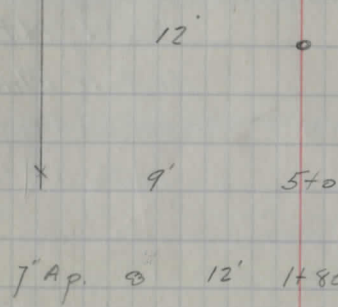 12'
9' 5+0
7" Ap. 8 12' 1+80